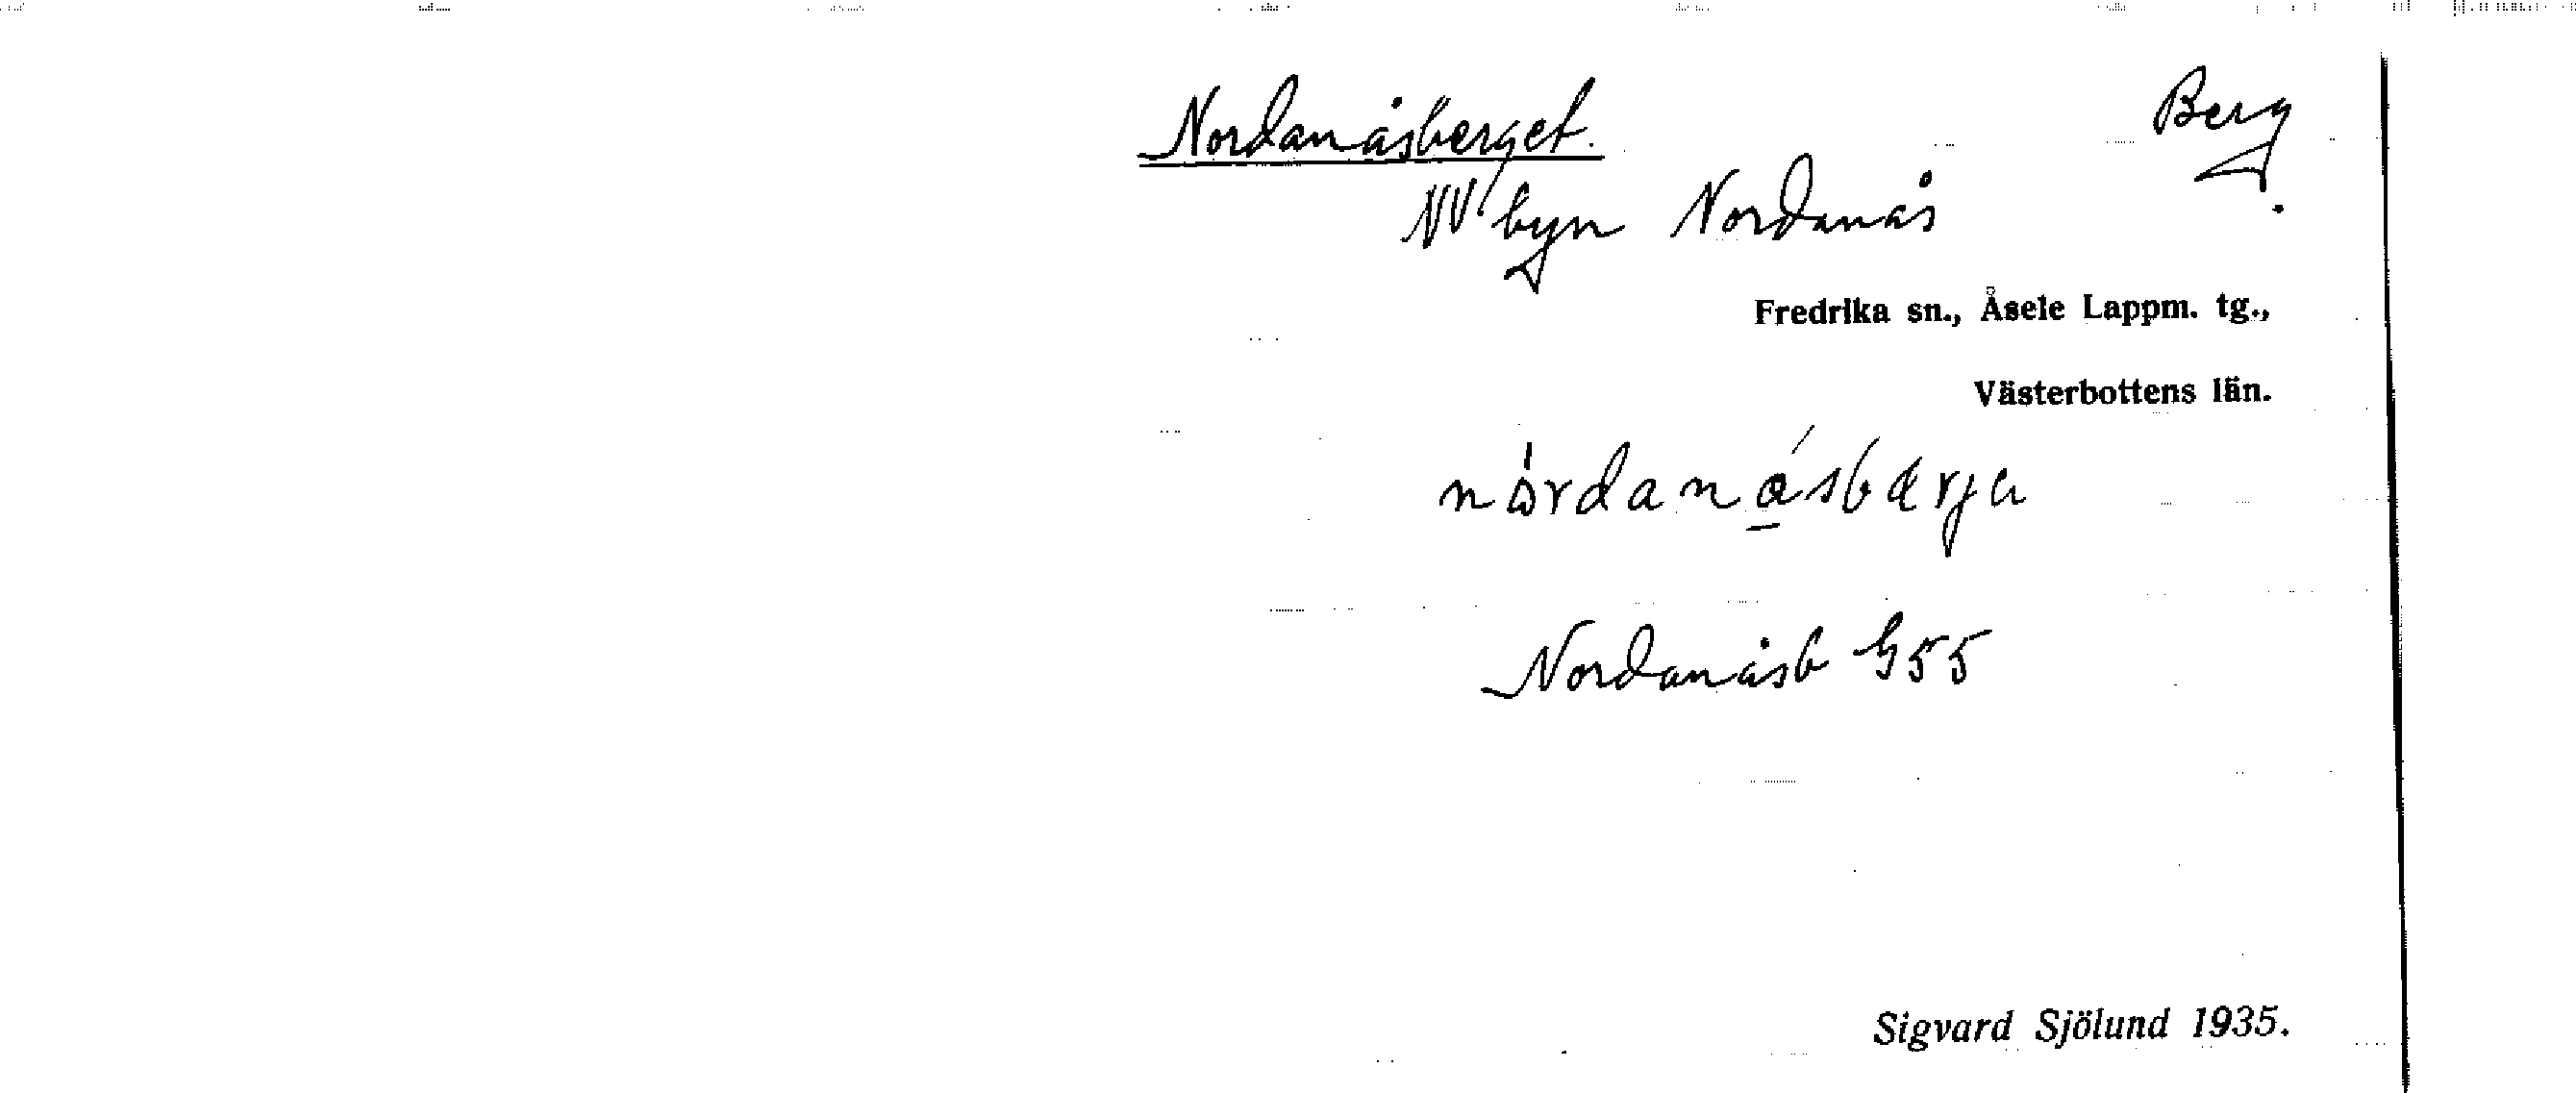 Nordanåsberget. Berg
NV byn Nordanås
Fredrika sn., Åsele Lappm. tg.,
Västerbottens län.
Nordanåsb G55
Sigvard Sjölund 1935.